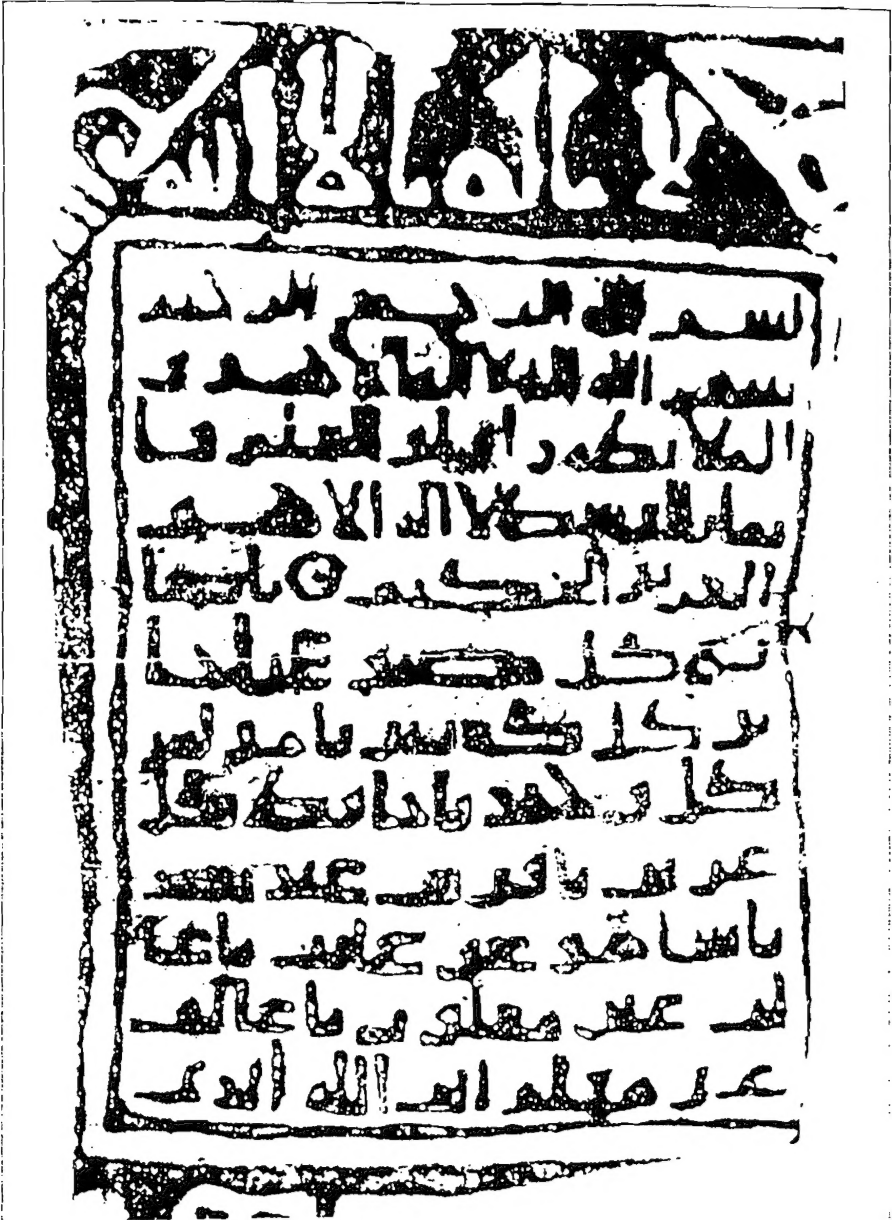 لا اله الا الله
بسم الله الرحمن الرحيم
شهد الله انه لا اله الا هو و
الملائكة و اولو العلم قا
ئما بالقسط لا اله الا هو
العزيز الحكيم يا صا
نع كل يا جا
بر كل كسير يا مونس
كل وحيد يا صاحب كل
غريب يا قريب غير بعيد
يا شاهد غير غائب يا غا
لب غير مغلوب يا عالم
غير الله